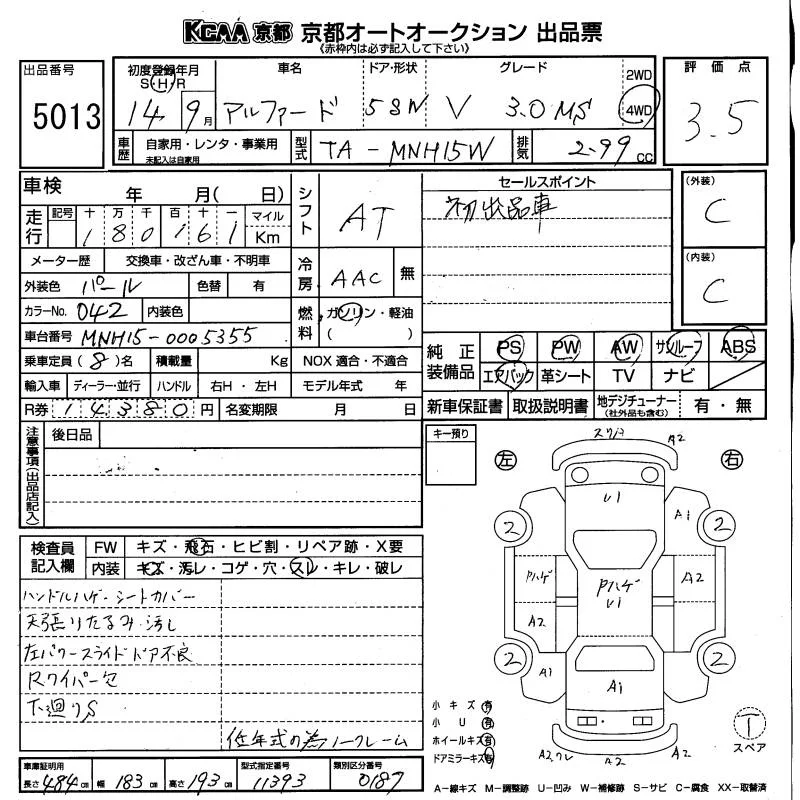 KCAA 京都 京都オートオークション 出品票
《赤枠内は必ず記入して下さい》
出品番号
5013
初度登録年月
S・H・R
14 9月
車名
アルファード
ドア・形状
5 SW
グレード
V 3.0 MS
2WD
4WD
評価点
3.5
車歴
自家用・レンタ・事業用
未記入は自家用
型式
TA-MNH15W
排気
2.99 CC
車検 年 月( 日)
走行
記号 十 万 千 百 十 一 マイル
1 8 0 1 6 1 Km
メーター歴 交換車・改ざん車・不明車
外装色 パール 色替 有
カラーNo. 042 内装色
車台番号 MNH15-0005355
乗車定員(8)名 積載量 Kg
輸入車 ディーラー・並行 ハンドル 右H・左H
R券 1 4 3 8 0 円 名変期限 月 日
シフト
AT
冷房
AAC 無
燃料
ガソリン・軽油
( )
NOX 適合・不適合
モデル年式 年
セールスポイント
初出品車
(外装)
C
(内装)
C
純正装備品
PS PW AW サンルーフ ABS
エアバック 革シート TV ナビ
新車保証書 取扱説明書 地デジチューナー 有・無
(社外品も含む)
注意事項(出品店記入)
後日品
キー預り
左
右
スリキ
A2
U1
A1
2
2
Pハゲ
Pハゲ
U1
A2
A2
2
2
A1
A1
A2ワレ
A2
A2
小キズ 有
小U 有
ホイールキズ 有
ドアミラーキズ 有
T
スペア
検査員記入欄
FW キズ・飛石・ヒビ割・リペア跡・X要
内装 キズ・汚レ・コゲ・穴・スレ・キレ・破レ
ハンドルハゲ・シートカバー
天張りたるみ・汚し
左パワースライドドア不良
Rワイパー欠
下廻りS
低年式の為ノークレーム
車庫証明用
長さ 484cm 幅 183cm 高さ 193cm
型式指定番号
11393
類別区分番号
0187
A―線キズ M―調整跡 U―凹み W―補修跡 S―サビ C―腐食 XX―取替済